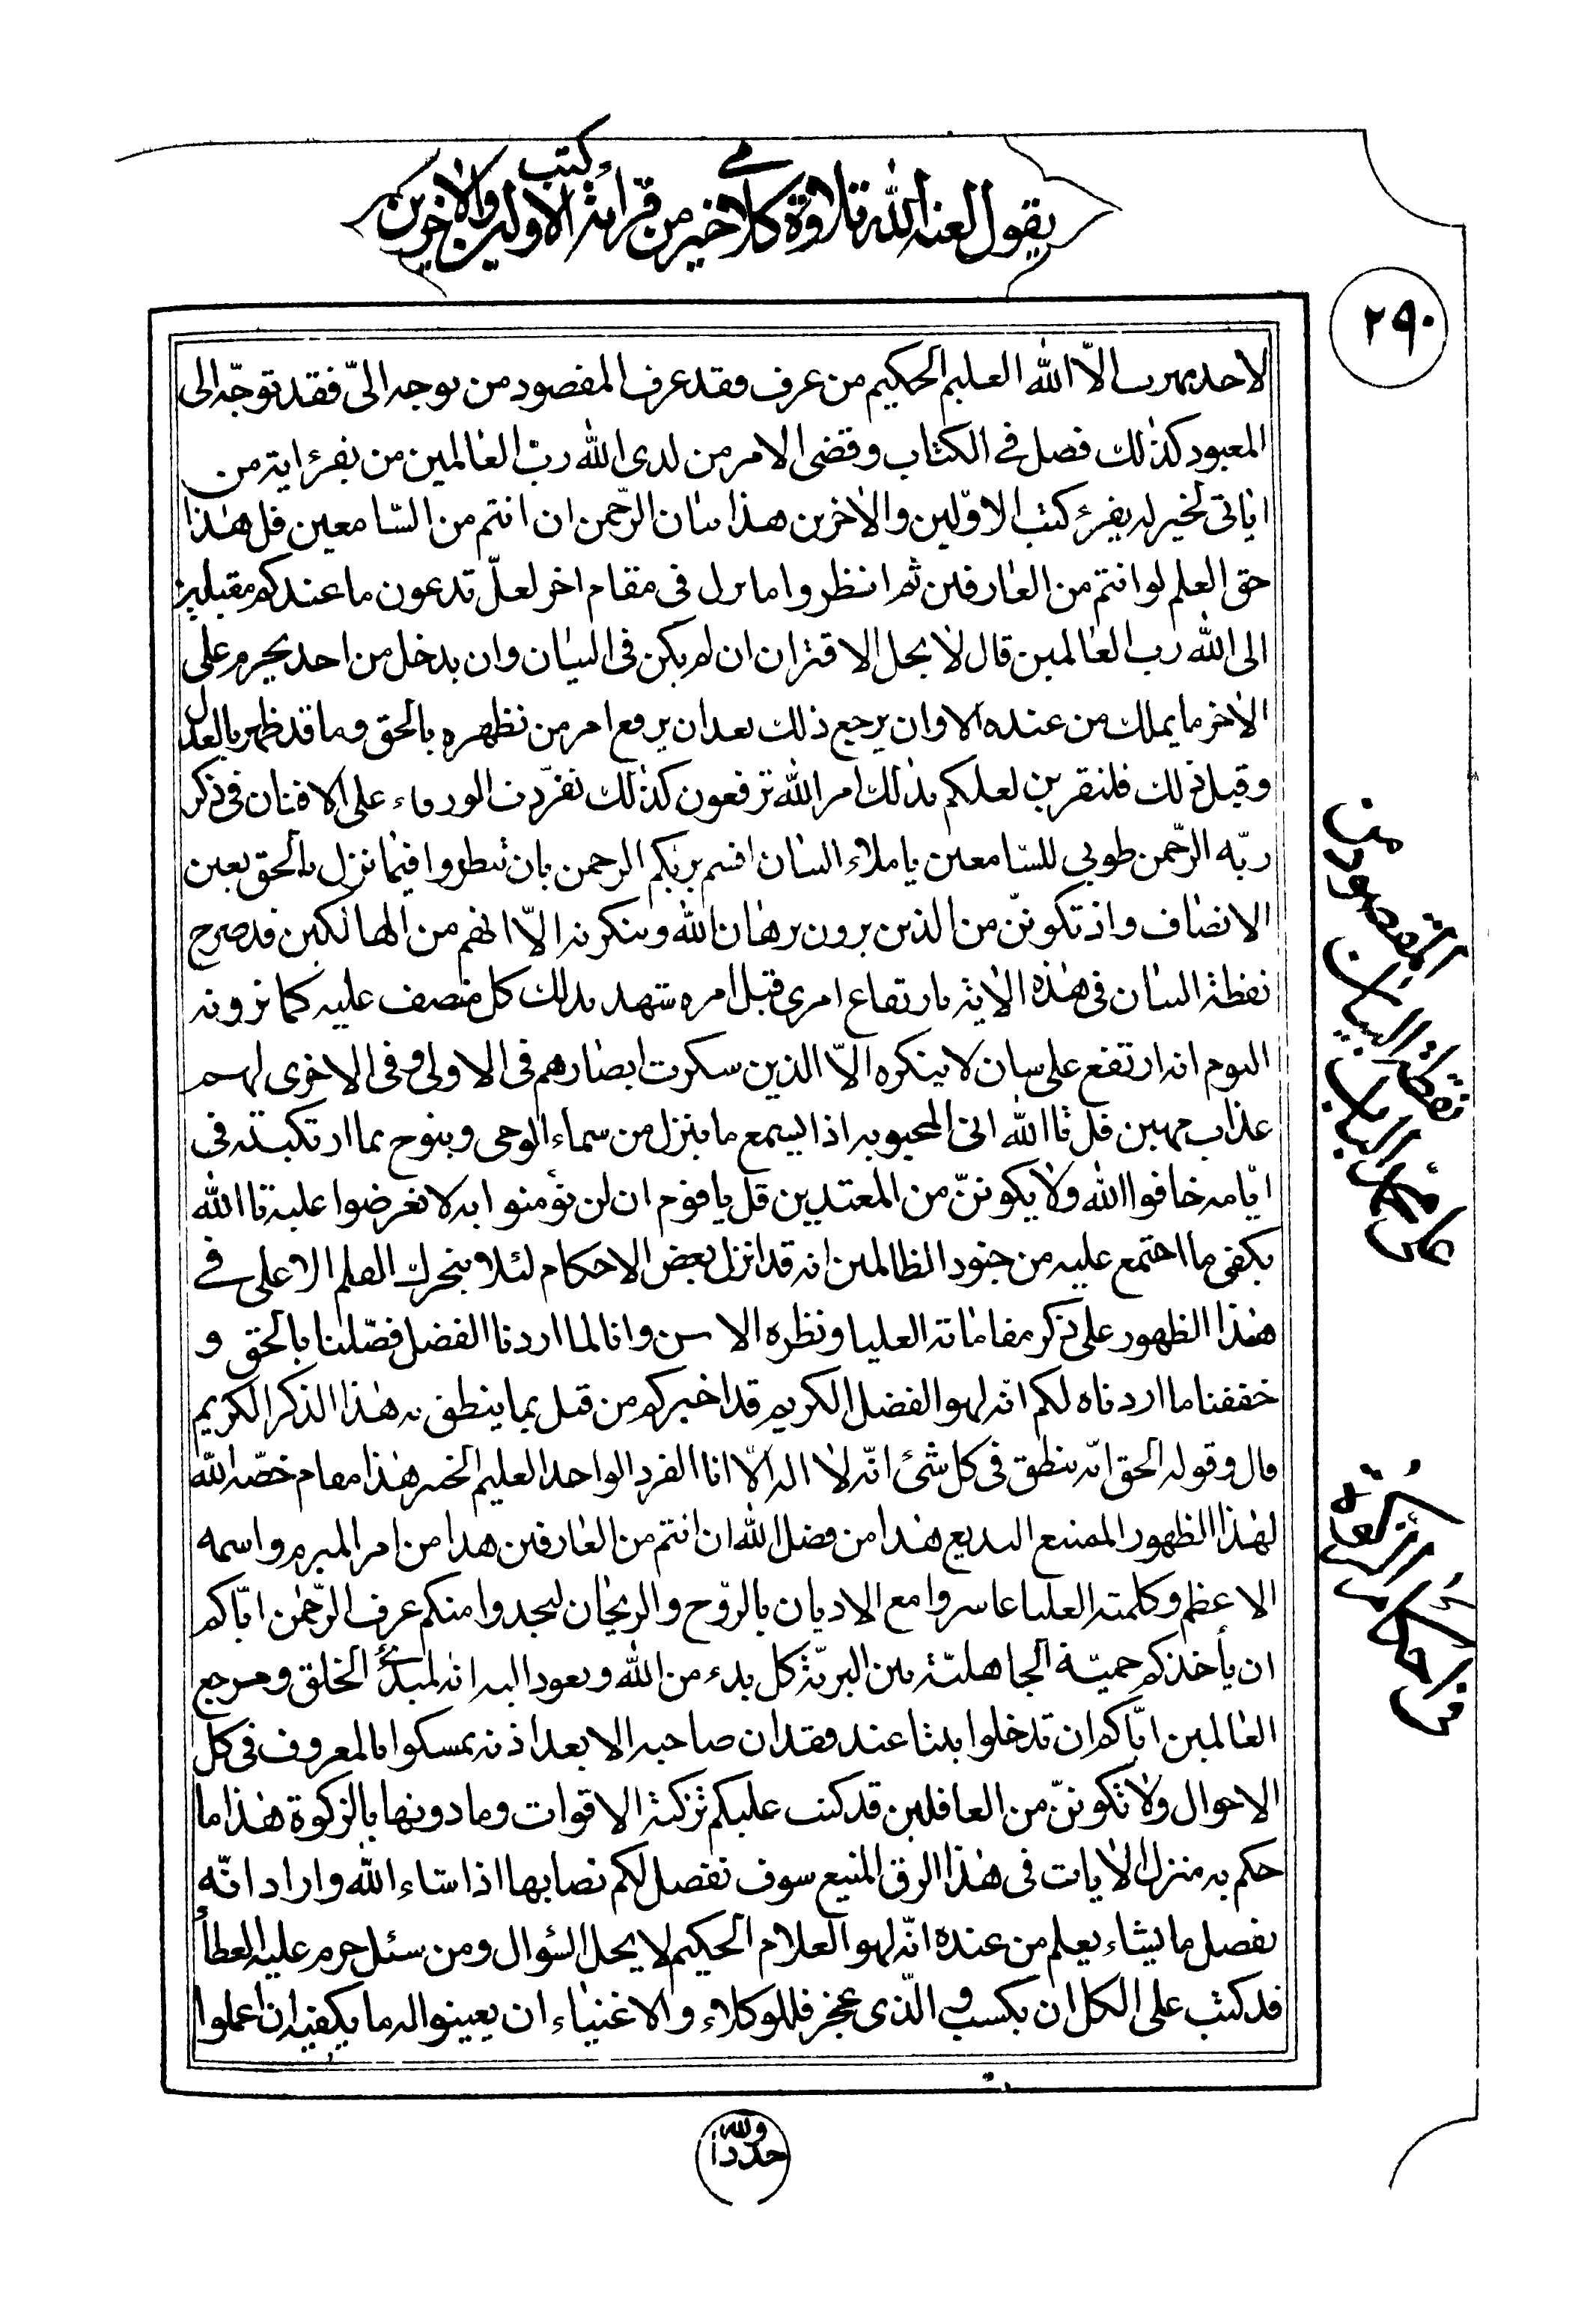 يقول لعنه الله تلاوة كلامي خير من قرائة كتب الاولين والاخرين
٢٩٠
لاحد مهرب الّا الله العليم الحكيم من عرف فقد عرف المقصود من توجه الىّ فقد توجّه الى
المعبود كذلك فصل فى الكتاب و قضى الامر من لدى الله رب العالمين من يقرء اية من
اياتى لخير له يقرء كتب الاوّلين والاخرين هذا بيان الرّحمن ان انتم من السّامعين قل هذا
حق العلم لو انتم من العارفين ثم انظروا ما نزل فى مقام اخر لعلّ تدعون ما عندكم مقبلين
الى الله رب العالمين قال لا يحل الاقتران ان لم يكن فى البيان وان يدخل من احد يحرم على
الاخر ما يملك من عنده الا وان يرجع ذلك بعد ان يرفع امر من نظهره بالحق وما قد ظهر بالعدل
و قبل ذلك فلتقربن لعلكم بذلك امر الله ترفعون كذلك تغرّدت الورقاء على الافنان فى ذكر
ربّه الرّحمن طوبى للسّامعين يا ملاء البيان اقسم بربكم الرحمن بان تنظروا فيما نزل بالحق بعين
الانصاف و اذ تكوننّ من الذين يرون برهان الله و ينكرنه الّا انهم من الهالكين قد صرح
نقطة البيان فى هذه الاية بارتفاع امرى قبل امره شهد بذلك كل منصف عليم كما ترونه
اليوم انه ارتفع على شان لا ينكره الّا الذين سكرت ابصارهم فى الاولى و فى الاخرى لهم
عذاب مهين قل تا الله انى لمحبوبه اذا يسمع ما ينزل من سماء الوحى و ينوح بما ارتكبته فى
ايّامه خافوا الله ولا يكوننّ من المعتدين قل يا قوم ان لن تؤمنوا به لا تعرضوا عليه تا الله
يكفى ما اجتمع عليه من جنود الظالمين انه قد انزل بعض الاحكام لئلا يتحرك القلم الاعلى فى
هذا الظهور على ذكر مقاماته العليا و نظره الاسن وانا لما اردنا الفضل فصّلنا بالحق و
خففنا ما اردناه لكم انه لهو الفضل الكريم قد اخبركم من قبل بما ينطق به هذا الذكر الكريم
قال و قوله الحق انّه ينطق فى كل شئ انّه لا اله الّا انا الفرد الواحد العليم الخبير هذا مقام خصّه الله
لهذا الظهور الممتنع البديع هذا من فضل الله ان انتم من العارفين هذا من امر المبرم و اسمه
الاعظم و كلمته العليا عاشروا مع الاديان بالرّوح و الريحان ليجدوا منكم عرف الرّحمن ايّاكم
ان يأخذكم حميّة الجاهليّة بين البريّة كل بدء من الله و يعود اليه انه لمبدئ الخلق و مرجع
العالمين ايّاكم ان تدخلوا بيتا عند فقدان صاحبه الا بعد اذنه تمسكوا بالمعروف فى كل
الاحوال ولا تكوننّ من الغافلين قد كتب عليكم تزكية الاقوات و ما دونها بالزكوة هذا ما
حكم به منزل الايات فى هذا الرق المنيع سوف نفصل لكم نصابها اذا شاء الله و اراد انّه
يفصل ما يشاء بعلم من عنده انّه لهو العلام الحكيم لا يحل السؤال و من سئل حرم عليه العطأ
قد كتب على الكل ان يكسب و الّذى عجز فللوكلاء و الاغنياء ان يعينوا له ما يكفيه ان اعملوا
المقصود من
نقطة البيان
على محمد الباب
من احكام الزكوة